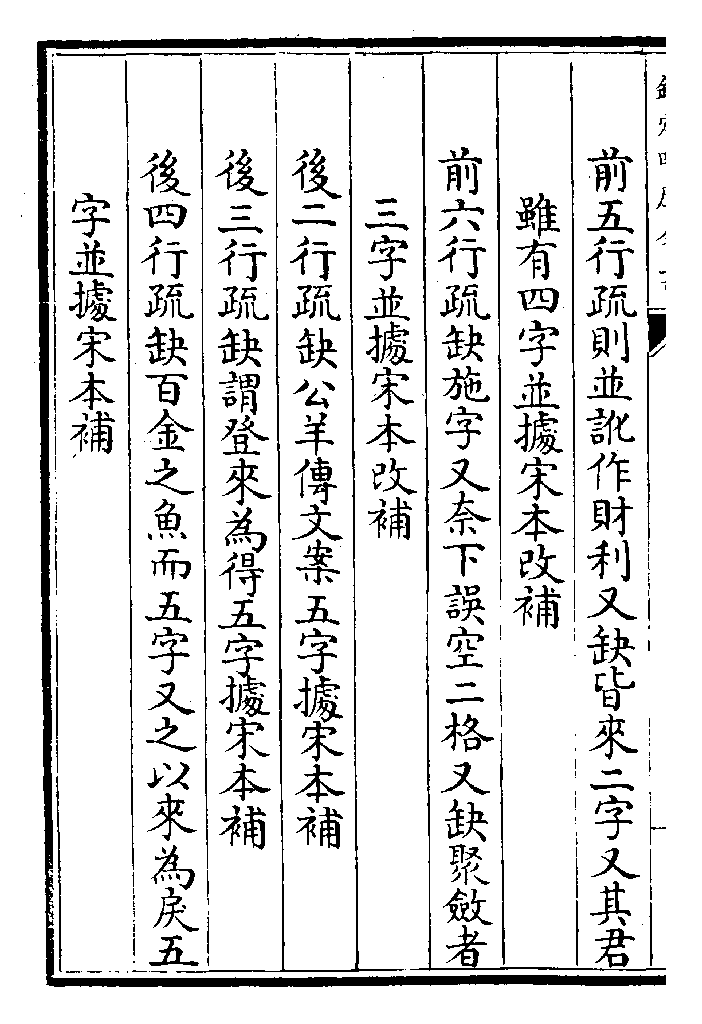 前五行疏則並訛作財利又缺皆來二字又其君
雖有四字並據宋本改補
前六行疏缺施字又奈下誤空二格又缺聚斂者
三字並據宋本改補
後二行疏缺公羊傳文案五字據宋本補
後三行疏缺謂登來為得五字據宋本補
後四行疏缺百金之魚而五字又之以來為戾五
字並據宋本補